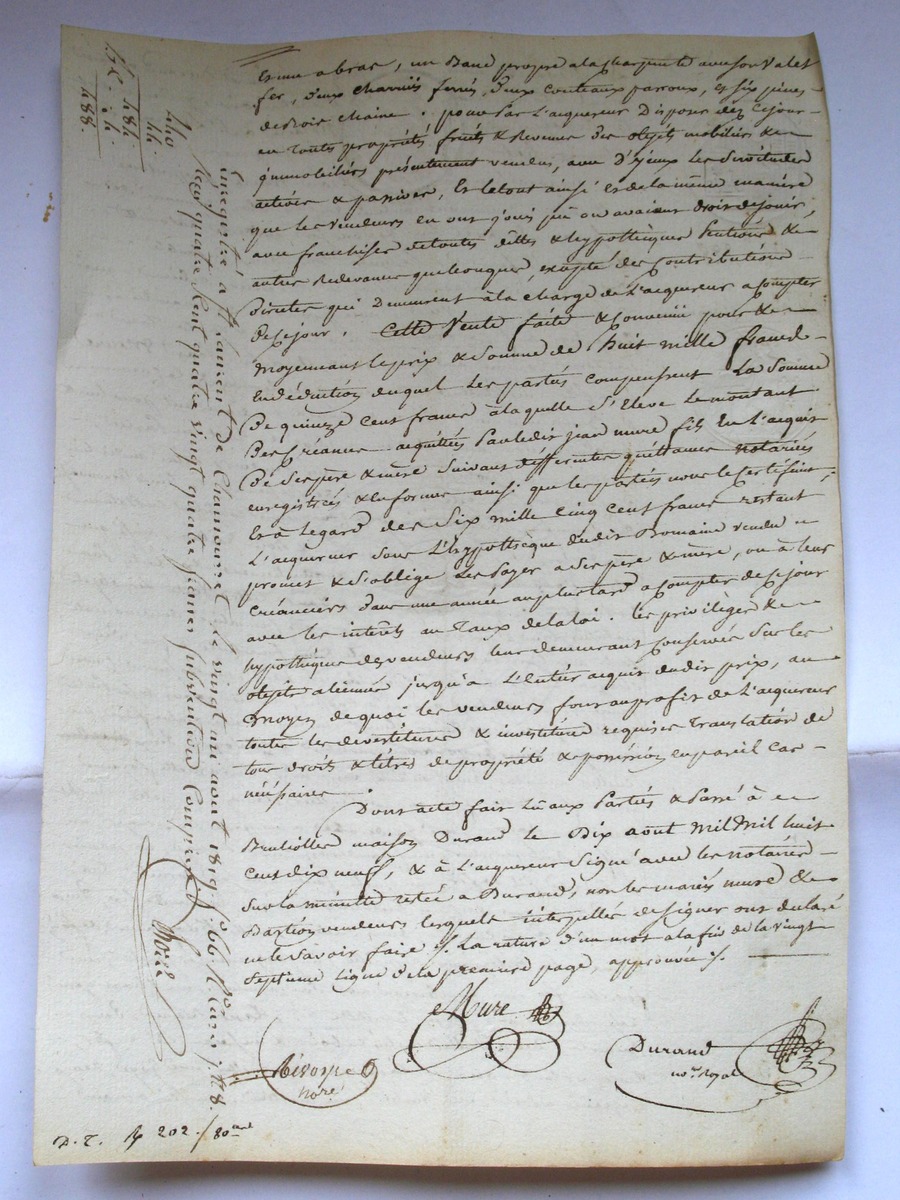 Et une a bras, un Banc propre a la charpente avec son valet
fer, deux charrues ferrés, deux couteaux paroux, et six pièces
de bois chaine. pour par l'acquereur Disposer dez Cejour
en toute propriété fruits & Revenus des objets mobiliés &
immobiliés présentement vendus, avec D'yceux les Servitudes
activés & passives, Et letout ainsi et de la même manière
que les vendeurs en ont joui jusqu'à ou avaient droit dejouir,
avec franchise detoutes dêttes & hypothèques Pentions &
autres Redevances quelconques, excepté des Contributions
Dirêtes qui Demeurent à la charge de L'acquereur a compter
de cejour. Cette Vente faite & convenüe pour &
moyennant le prix & Somme de huit mille francs
En déduction duquel les partiés compensent La Somme
De quinze Cent francs à laquelle S'Eleve Le montant
Des Créances acquittées Par ledit jean mure fils En L'acquit
De Ses père & mère Suivant différentes quittances notariés
enregistrées & en forme ainsi que les partiés nous le Certifient;
Et à legard des Six mille Cinq cent francs restant
L'acquereur sous L'hypothèque dudit Domaine vendu
promet & s'oblige Les Payer a Ses père & mère, ou à leurs
Créanciers dans une année au plus tard a Compter de Cejour
avec les intérêts au Taux de la loi. les privilèges &
hypothèques des vendeurs leur demeurant Conservés Sur les
objets alienés jusqu'à L'entier acquit dudit prix, au
moyen de quoi les vendeurs font au profit de L'acquereur
toutes les devestitures & investitures requises Translation de
tous droits & titres de propriété & possession en pareil Cas
nécéssaires
Dont acte fait Lû aux Partiés & Passé à
Brullioles maison Durand le Dix aout Mil Mil huit
Cent dix neuf, & à L'acquereur Signé avec les notaires
Sur la minutte restée a Durand, non les mariés mure &
Bastion vendeurs lesquels interpellés designer ont déclaré
ne le Savoir faire ./. La rature d'un mot a la fin de la vingt
Septieme ligne de la premiere page, approuvée ./.
Mure
Durand
nore Royal
nore
Enregistré a St Laurent de Chamousset le vingt un aout 1819 fo 66
reçu quatre Cent quatre vingt quatre francs subvention Comprise
440
44
484
4
488
D. T. 202 / 80